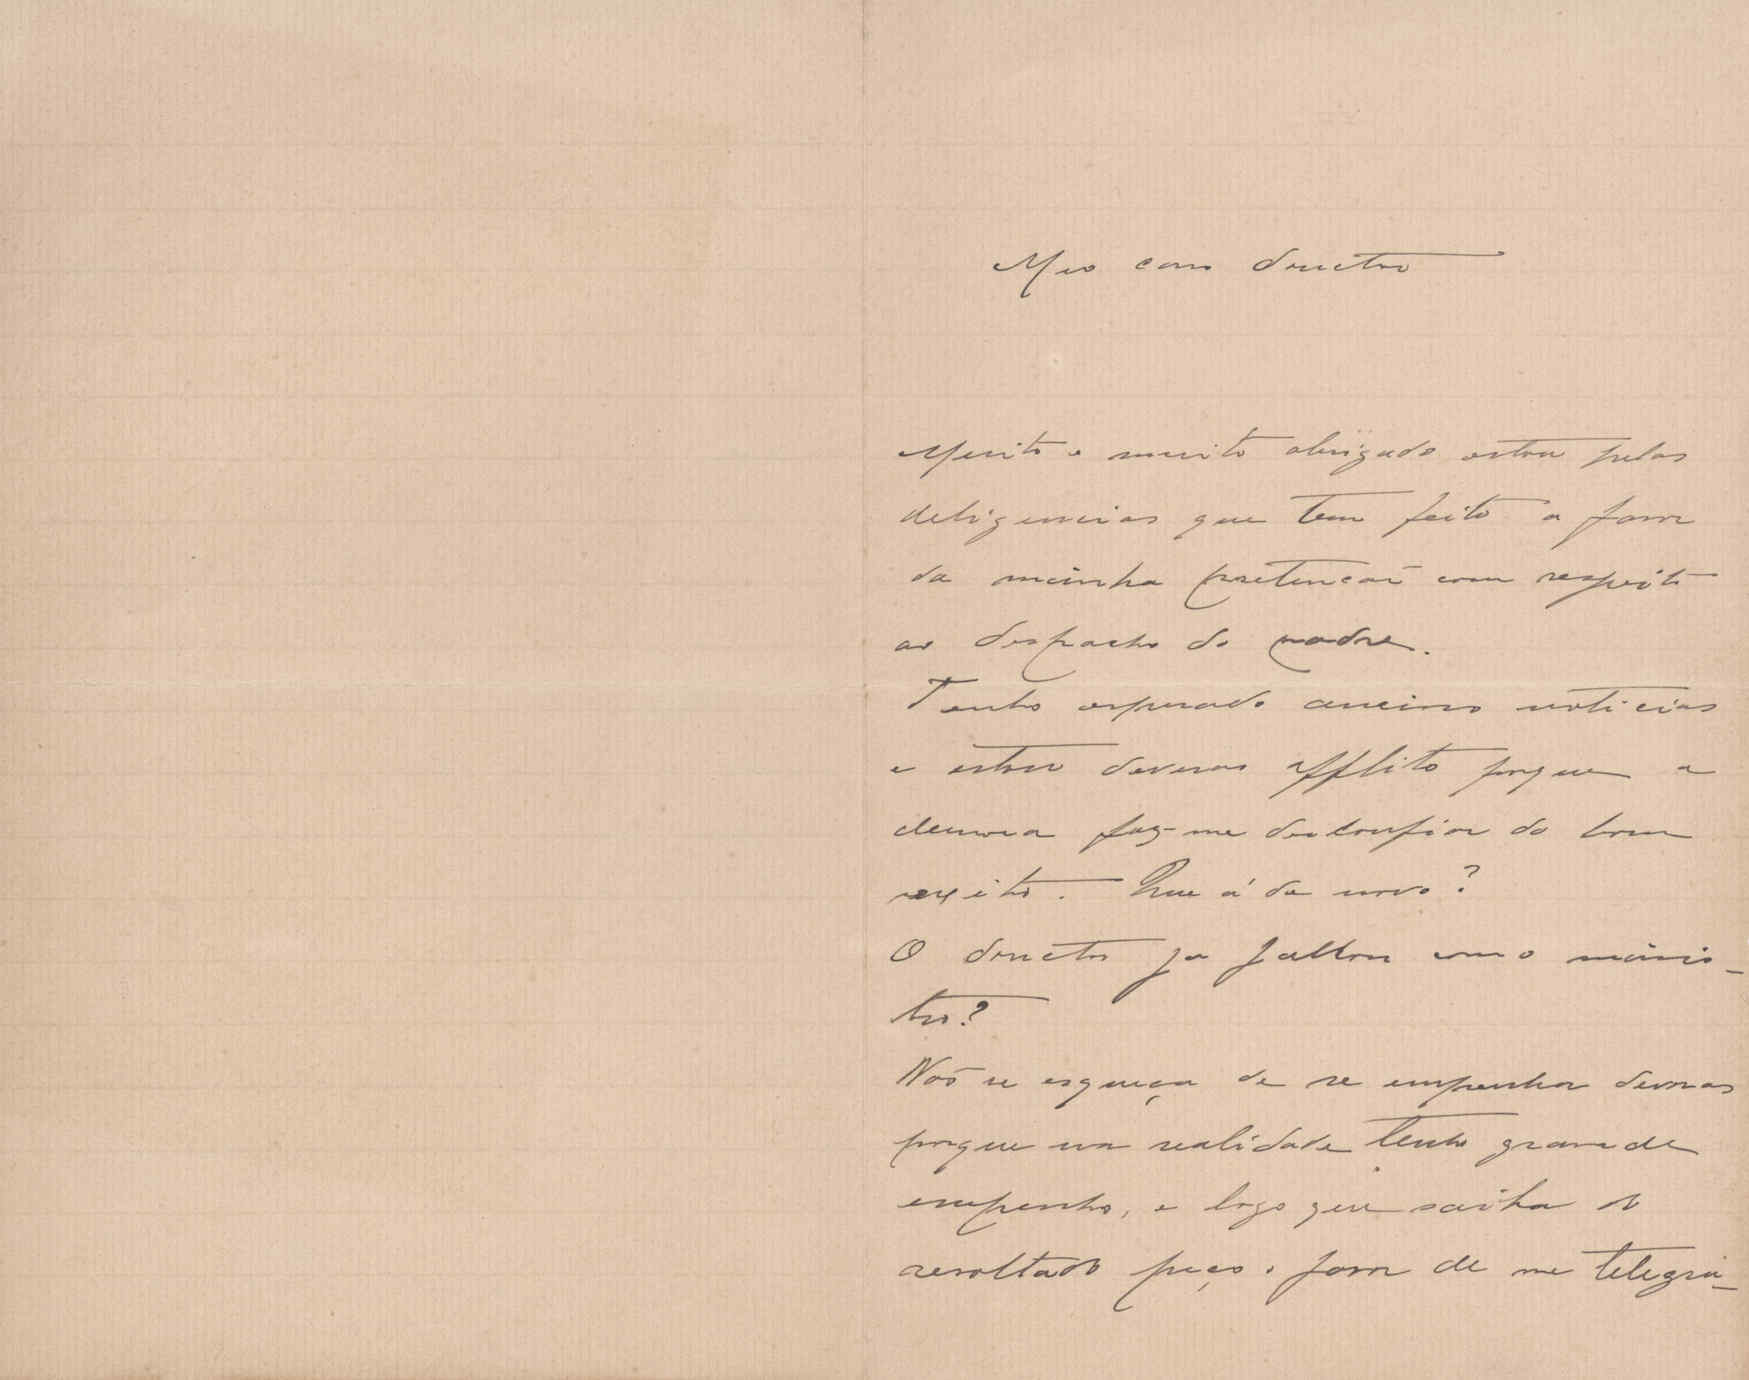 Meo caro doutor
Muito e muito obrigado estou pelas
deligencias que tem feito a favor
da minha pretencaõ com respeito
ao despacho do padre.
Tenho esperado ancioso noticias
e estou deveras afflito porque a
demora faz-me desconfiar do bom
exito. Que á de novo?
O douctor ja fallou com o minis-
tro?
Naõ se esqueça de se empenhar deveras
porque na realidade tenho grande
empenho, e logo que saiba o
resoltado peço o favor de me telegra-